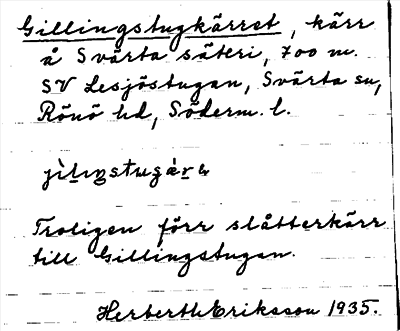 Gillingstugkärret, kärr
å Svärta säteri, 700 m.
SV Lesjöstugan, Svärta sn,
Rönö hd, Söderm. l.
Troligen förr slåtterkärr
till Gillingstugan.
Herberth Eriksson 1935.